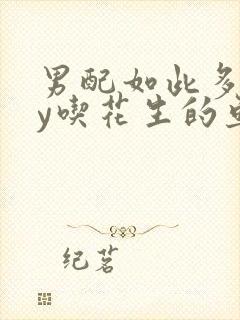 男配如此多
y喫花生的
纪茗